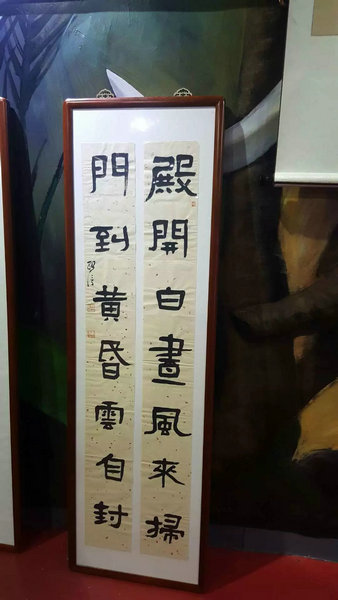 殿開白晝風來掃
門到黃昏雲自封